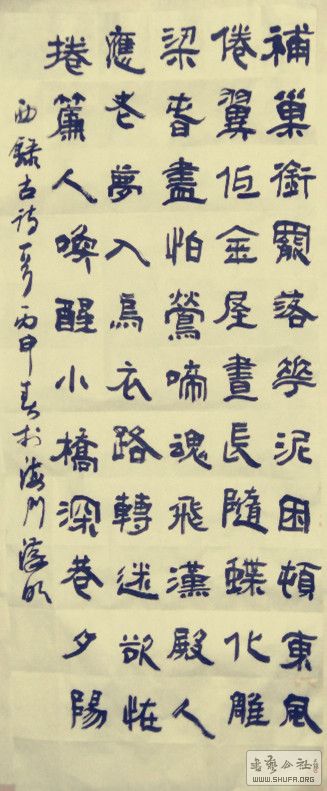 補巢銜罷落華泥困頓東風
倦翼低金屋晝長隨蝶化雕
梁春盡怕鶯啼魂飛漢殿人
應老夢入烏衣路轉迷欲恠
捲簾人喚醒小橋深巷夕陽
西 錄古詩一首丙申春於海門
书艺公社
WWW.SHUFA.ORG